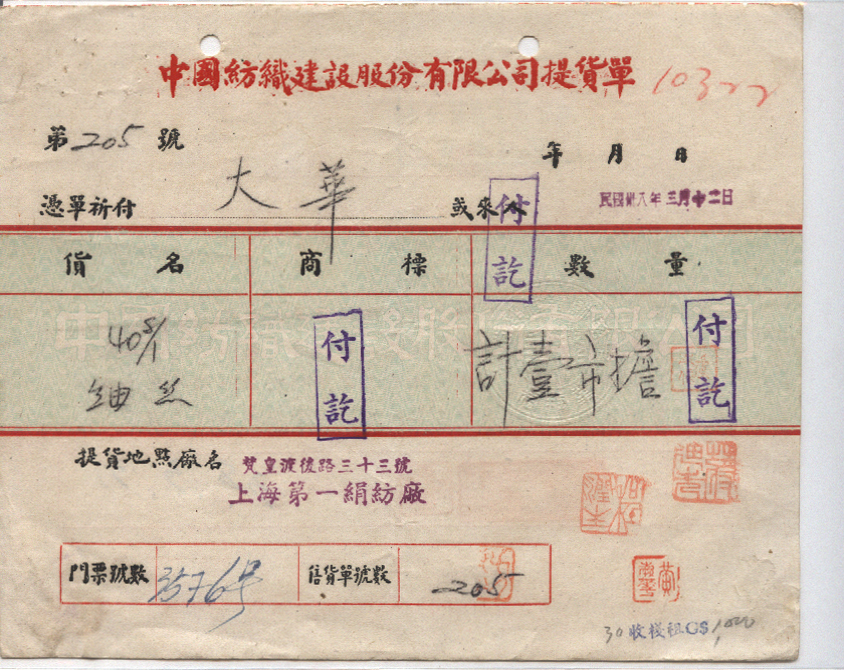 中國紡織建設股份有限公司提貨單 10322
第205號
年 月 日
憑單祈付 大華 或來人 民國卅八年三月十二日
付訖
貨名 商標 數量
40s/1 付訖 計壹市擔 付訖
紬丝
提貨地點廠名 梵皇渡後路三十三號
上海第一絹紡廠
門票號數 售貨單號數 205
30收棧租GS1,000